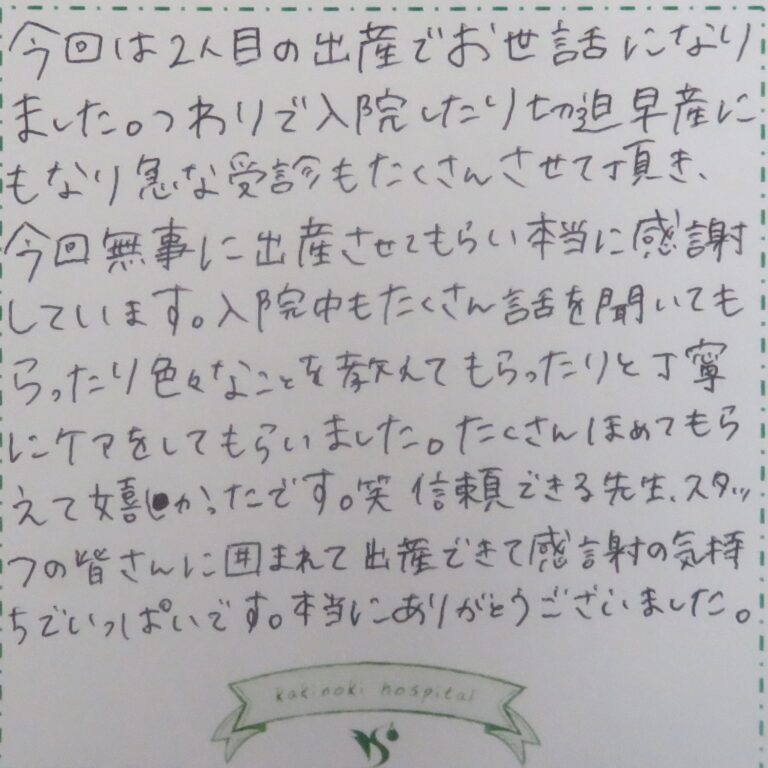 今回は2人目の出産でお世話になり
ました。つわりで入院したり切迫早産に
もなり急な受診もたくさんさせて頂き、
今回無事に出産させてもらい本当に感謝
しています。入院中もたくさん話を聞いても
らったり色々なことを教えてもらったりと丁寧
にケアをしてもらいました。たくさんほめてもら
えて嬉しかったです。笑 信頼できる先生、スタッ
フの皆さんに囲まれて出産できて感謝の気持
ちでいっぱいです。本当にありがとうございました。
kakinoki hospital